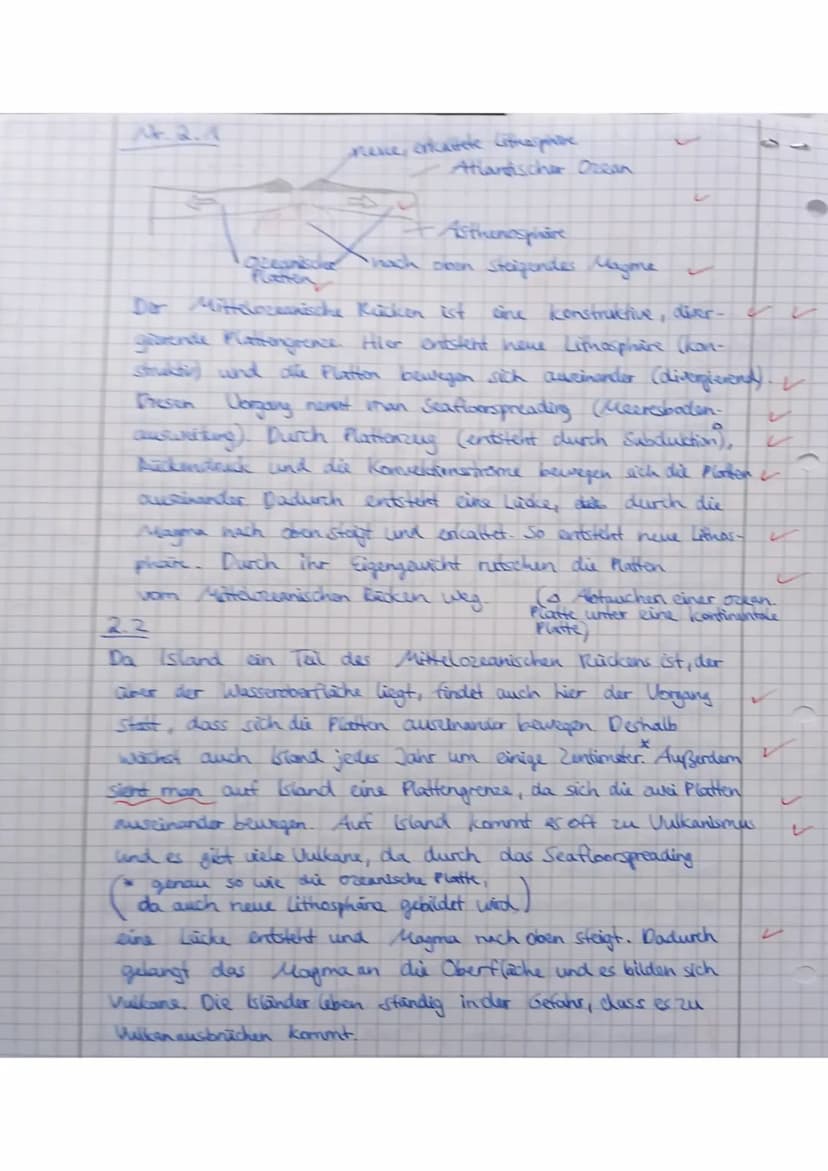 Nr. 2.1
neue, erkaltete Lithosphäre
Atlantischer Ozean
Asthenosphäre
ozeanische
Platten
nach oben steigendes Magma
Der Mittelozeanische Rücken ist eine konstruktive, diver-
gierende Plattengrenze. Hier entsteht neue Lithosphäre (kon-
struktiv) und die Platten bewegen sich auseinander (divergierend).
Diesen Vorgang nennt man Seafloorspreading (Meeresboden-
ausweitung). Durch Plattenzug (entsteht durch Subduction),
Rückendruck und die Konvektionsströme bewegen sich die Platten
auseinander. Dadurch entsteht eine Lücke, durch die
Magma nach oben steigt und erkaltet. So entsteht neue Lithos-
phäre. Durch ihr Eigengewicht rutschen die Platten
vom Mittelozeanischen Rücken weg.
(Abtauchen einer ozean.
Platte unter eine kontinentale
Platte)
2.2
Da Island ein Teil des Mittelozeanischen Rückens ist, der
über der Wasseroberfläche liegt, findet auch hier der Vorgang
statt, dass sich die Platten auseinander bewegen. Deshalb
wächst auch Island jedes Jahr um einige Zentimeter.* Außerdem
sieht man auf Island eine Plattengrenze, da sich die zwei Platten
auseinander bewegen. Auf Island kommt es oft zu Vulkanismus
und es gibt viele Vulkane, da durch das Seafloorspreading
(* genau so wie die ozeanische Platte,
da auch neue Lithosphäre gebildet wird)
eine Lücke entsteht und Magma nach oben steigt. Dadurch
gelangt das Magma an die Oberfläche und es bilden sich
Vulkane. Die Isländer leben ständig in der Gefahr, dass es zu
Vulkanausbrüchen kommt.